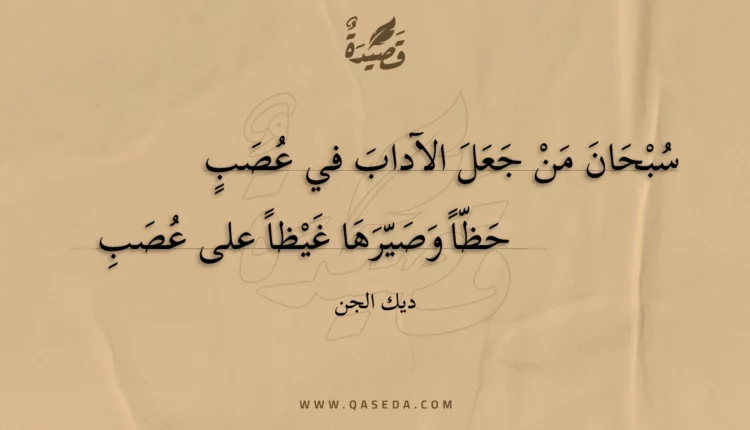 قَصِيدَةٌ
سُبْحَانَ مَنْ جَعَلَ الآدابَ في عُصَبٍ
حَظّاً وَصَيّرَهَا غَيْظاً على عُصَبِ
ديك الجن
WWW.QASEDA.COM